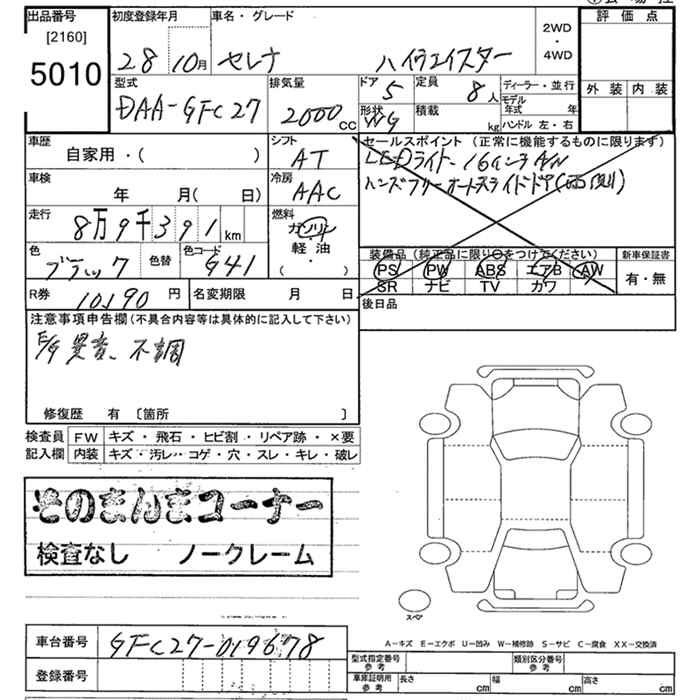 出品番号 初度登録年月 車名・グレード 評価点
[2160] 2WD
5010 28 10月 セレナ ハイウェイスター ・
4WD
型式 排気量 ドア 5 定員 8人 ディーラー・並行 外装 内装
DAA-GFC27 2000cc 形状 WG 積載 kg モデル年式 年
ハンドル 左・右
車歴 シフト セールスポイント (正常に機能するものに限ります)
自家用・( ) AT LEDライト 16インチAW
車検 冷房 ハンズフリーオートスライドドア(両側)
年 月( 日) AAC
走行 燃料
8万9千391km ガソリン
軽・油
色 色替 色コード ・ 装備品 (純正品に限り〇をつけてください) 新車保証書
ブラック G41 ( ) PS PW ABS エアB AW 有・無
SR ナビ TV カワ
R券 10190円 名変期限 月 日 後日品
注意事項申告欄(不具合内容等は具体的に記入して下さい)
E/G 異音、不調
修復歴 有 〔箇所 〕
検査員 FW キズ・飛石・ヒビ割・リペア跡・×要
記入欄 内装 キズ・汚レ・コゲ・穴・スレ・キレ・破レ
そのまんまコーナー
検査なし ノークレーム
スペア
A-キズ E-エクボ U-凹み W-補修跡 S-サビ C-腐食 XX-交換済
車台番号 GFC27-019678
型式指定番号 参考 類別区分番号 参考
登録番号 車庫証明用 参考 長さ cm 幅 cm 高さ cm